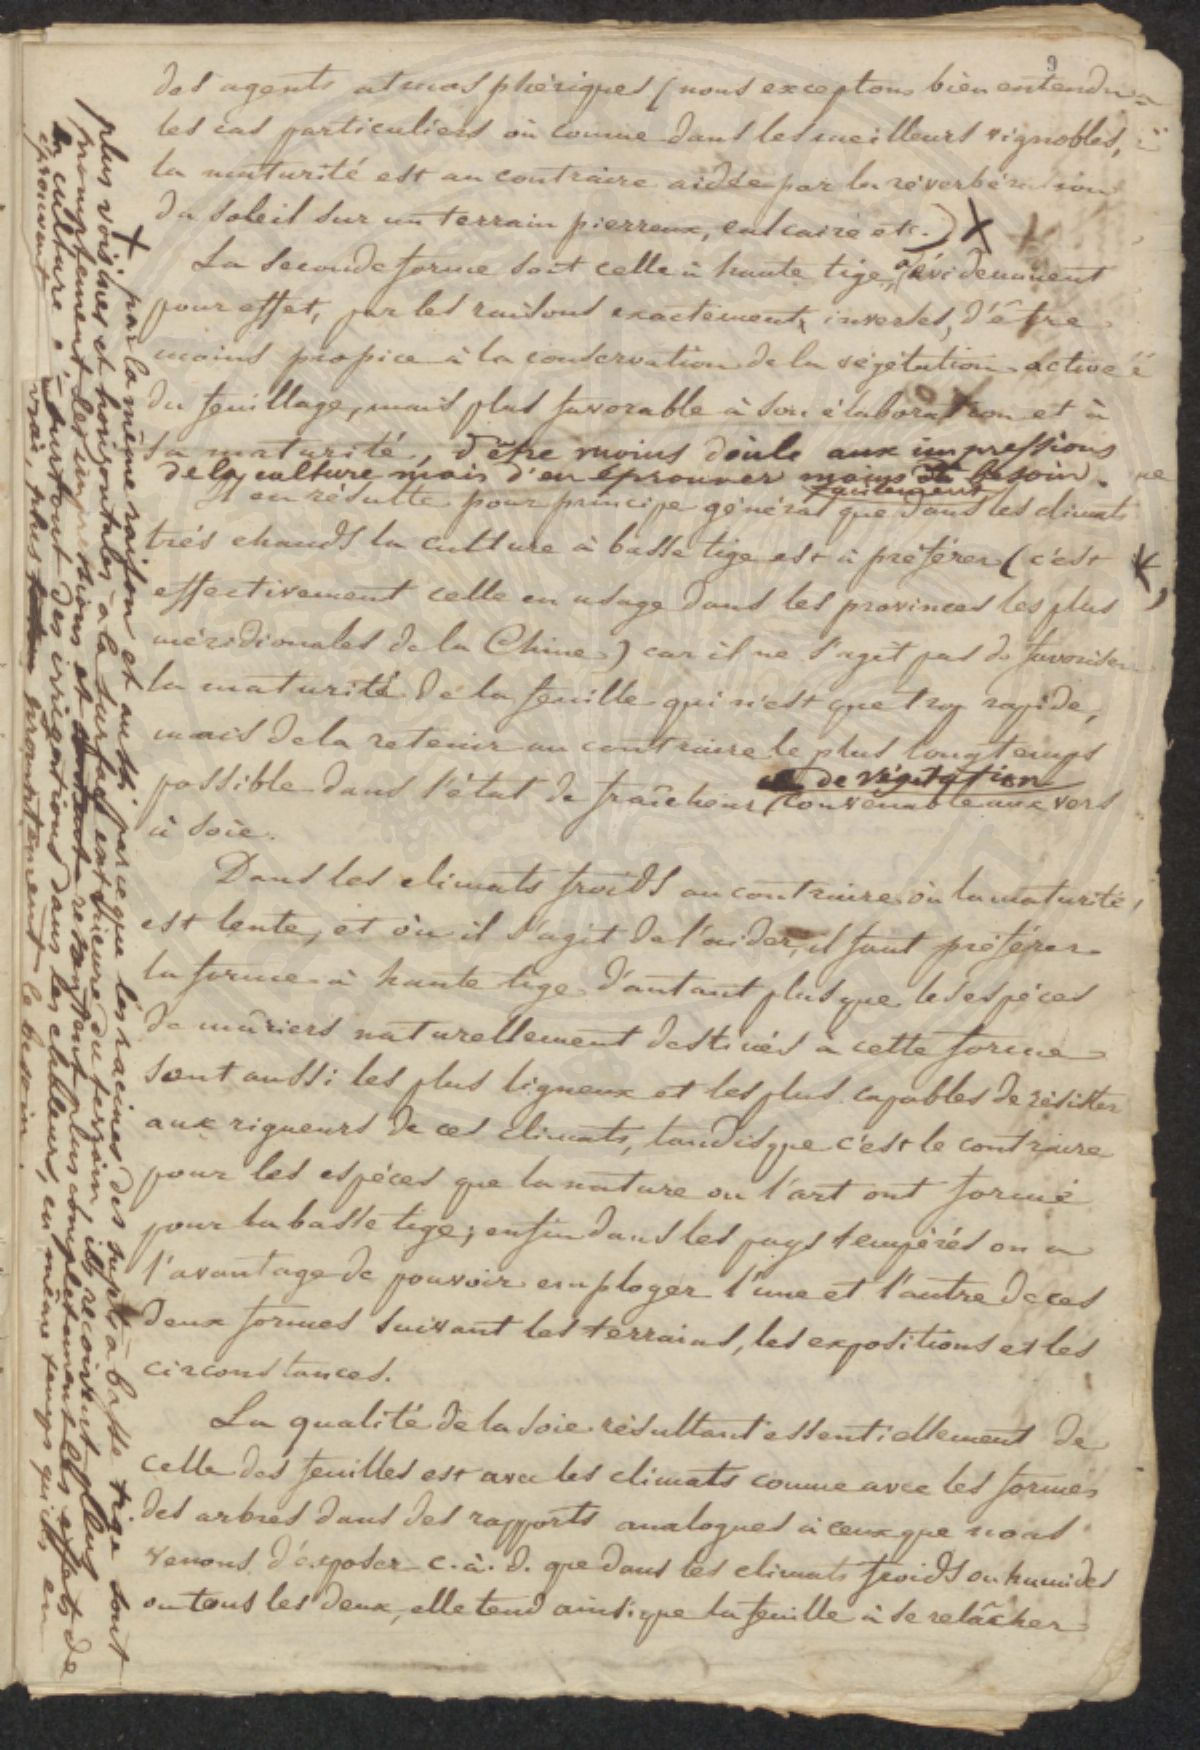 9
des agents atmosphériques (nous exceptons bien entendu
les cas particuliers où comme dans les meilleurs vignobles,
la maturité est au contraire aidée par la réverbération
du soleil sur un terrain pierreux, calcaire etc.) X
La seconde forme soit celle à haute tige, a évidemment
pour effet, par les raisons exactement inverses, d'être
moins propice à la conservation de la végétation active
du feuillage, mais plus favorable à son élaboration et à
sa maturité, d'être moins docile aux impressions
de la culture mais d'en éprouver moins le besoin.
facilement
Il en résulte pour principe général que dans les climats
trés chauds la culture à basse tige est à préférer (c'est
effectivement celle en usage dans les provinces les plus
méridionales de la Chine) car il ne s'agit pas de favoriser
la maturité de la feuille qui n'est que trop rapide,
mais de la retenir au contraire le plus longtemps
de végétation
possible dans l'état de fraîcheur convenable aux vers
à soie.
Dans les climats froids au contraire où la maturité
est lente, et où il s'agit de l'aider, il faut préférer
la forme à haute tige d'autant plus que les espéces
de mûriers naturellement destinés à cette forme
sont aussi les plus ligneux et les plus capables de résister
aux rigueurs de ces climats, tandis que c'est le contraire
pour les espéces que la nature ou l'art ont formé
pour la basse tige; enfin dans les pays tempérés on a
l'avantage de pouvoir employer l'une et l'autre de ces
deux formes suivant les terrains, les expositions et les
circonstances.
La qualité de la soie résultant essentiellement de
celle des feuilles est avec les climats comme avec les formes
des arbres dans des rapports analogues à ceux que nous
venons d'exposer c. à. d. que dans les climats froids ou humides
ou tous les deux, elle tend ainsi que la feuille à se relâcher
X par la même raison et aussi parce que les racines des sujets à basse tige sont
plus voisines et horizontales à la surface extérieure du terrain, ils reçoivent plus
promptement les impressions et ressentent plus complètement les effets de
la culture, surtout des irrigations dans les chaleurs, en même temps qu'ils en
éprouvent vrai, plus promptement le besoin